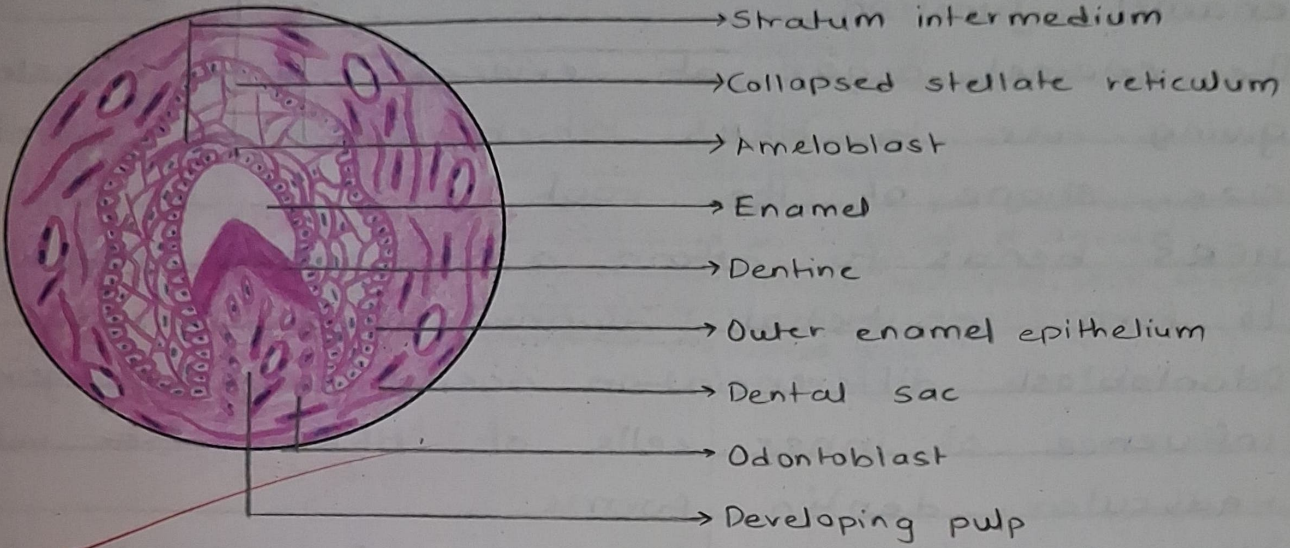 Stratum intermedium
Collapsed stellate reticulum
Ameloblast
Enamel
Dentine
Outer enamel epithelium
Dental sac
Odontoblast
Developing pulp